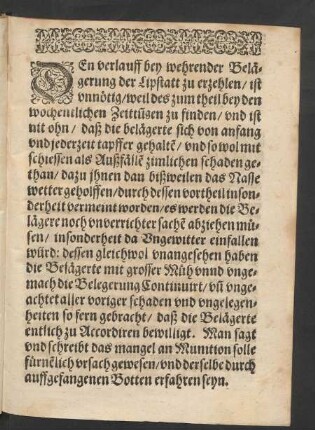 DEn verlauff bey wehrender Belä-
gerung der Lipstatt zu erzehlen/ ist
vnnötig/ weil des zum theil bey den
wochentlichen Zeittügen zu finden/ vnd ist
nit ohn/ daß die belägerte sich von anfang
vnd jederzeit tapffer gehaltē/ vnd so wol mit
schiessen als Außfällē zimlichen schaden ge-
than/ dazu jhnen dan bißweilen das Nasse
wetter geholffen/ durch dessen vortheil inson-
derheit vermeint worden/ es werden die Be-
lägere noch vnverrichter sachē abziehen mü-
sen/ insonderheit da Vngewitter einfallen
würd: dessen gleichwol vnangesehen haben
die Belägerte mit grosser Müh vnnd vnge-
mach die Belegerung Continuirt/ vñ vnge-
achtet aller voriger schaden vnd vngelegen-
heiten so fern gebracht/ daß die Belägerte
entlich zu Accordiren bewilligt. Man sagt
vnd schreibt das mangel an Munition solle
fürnēlich vrsach gewesen/ vnd derselbe durch
auffgefangenen Botten erfahren seyn.